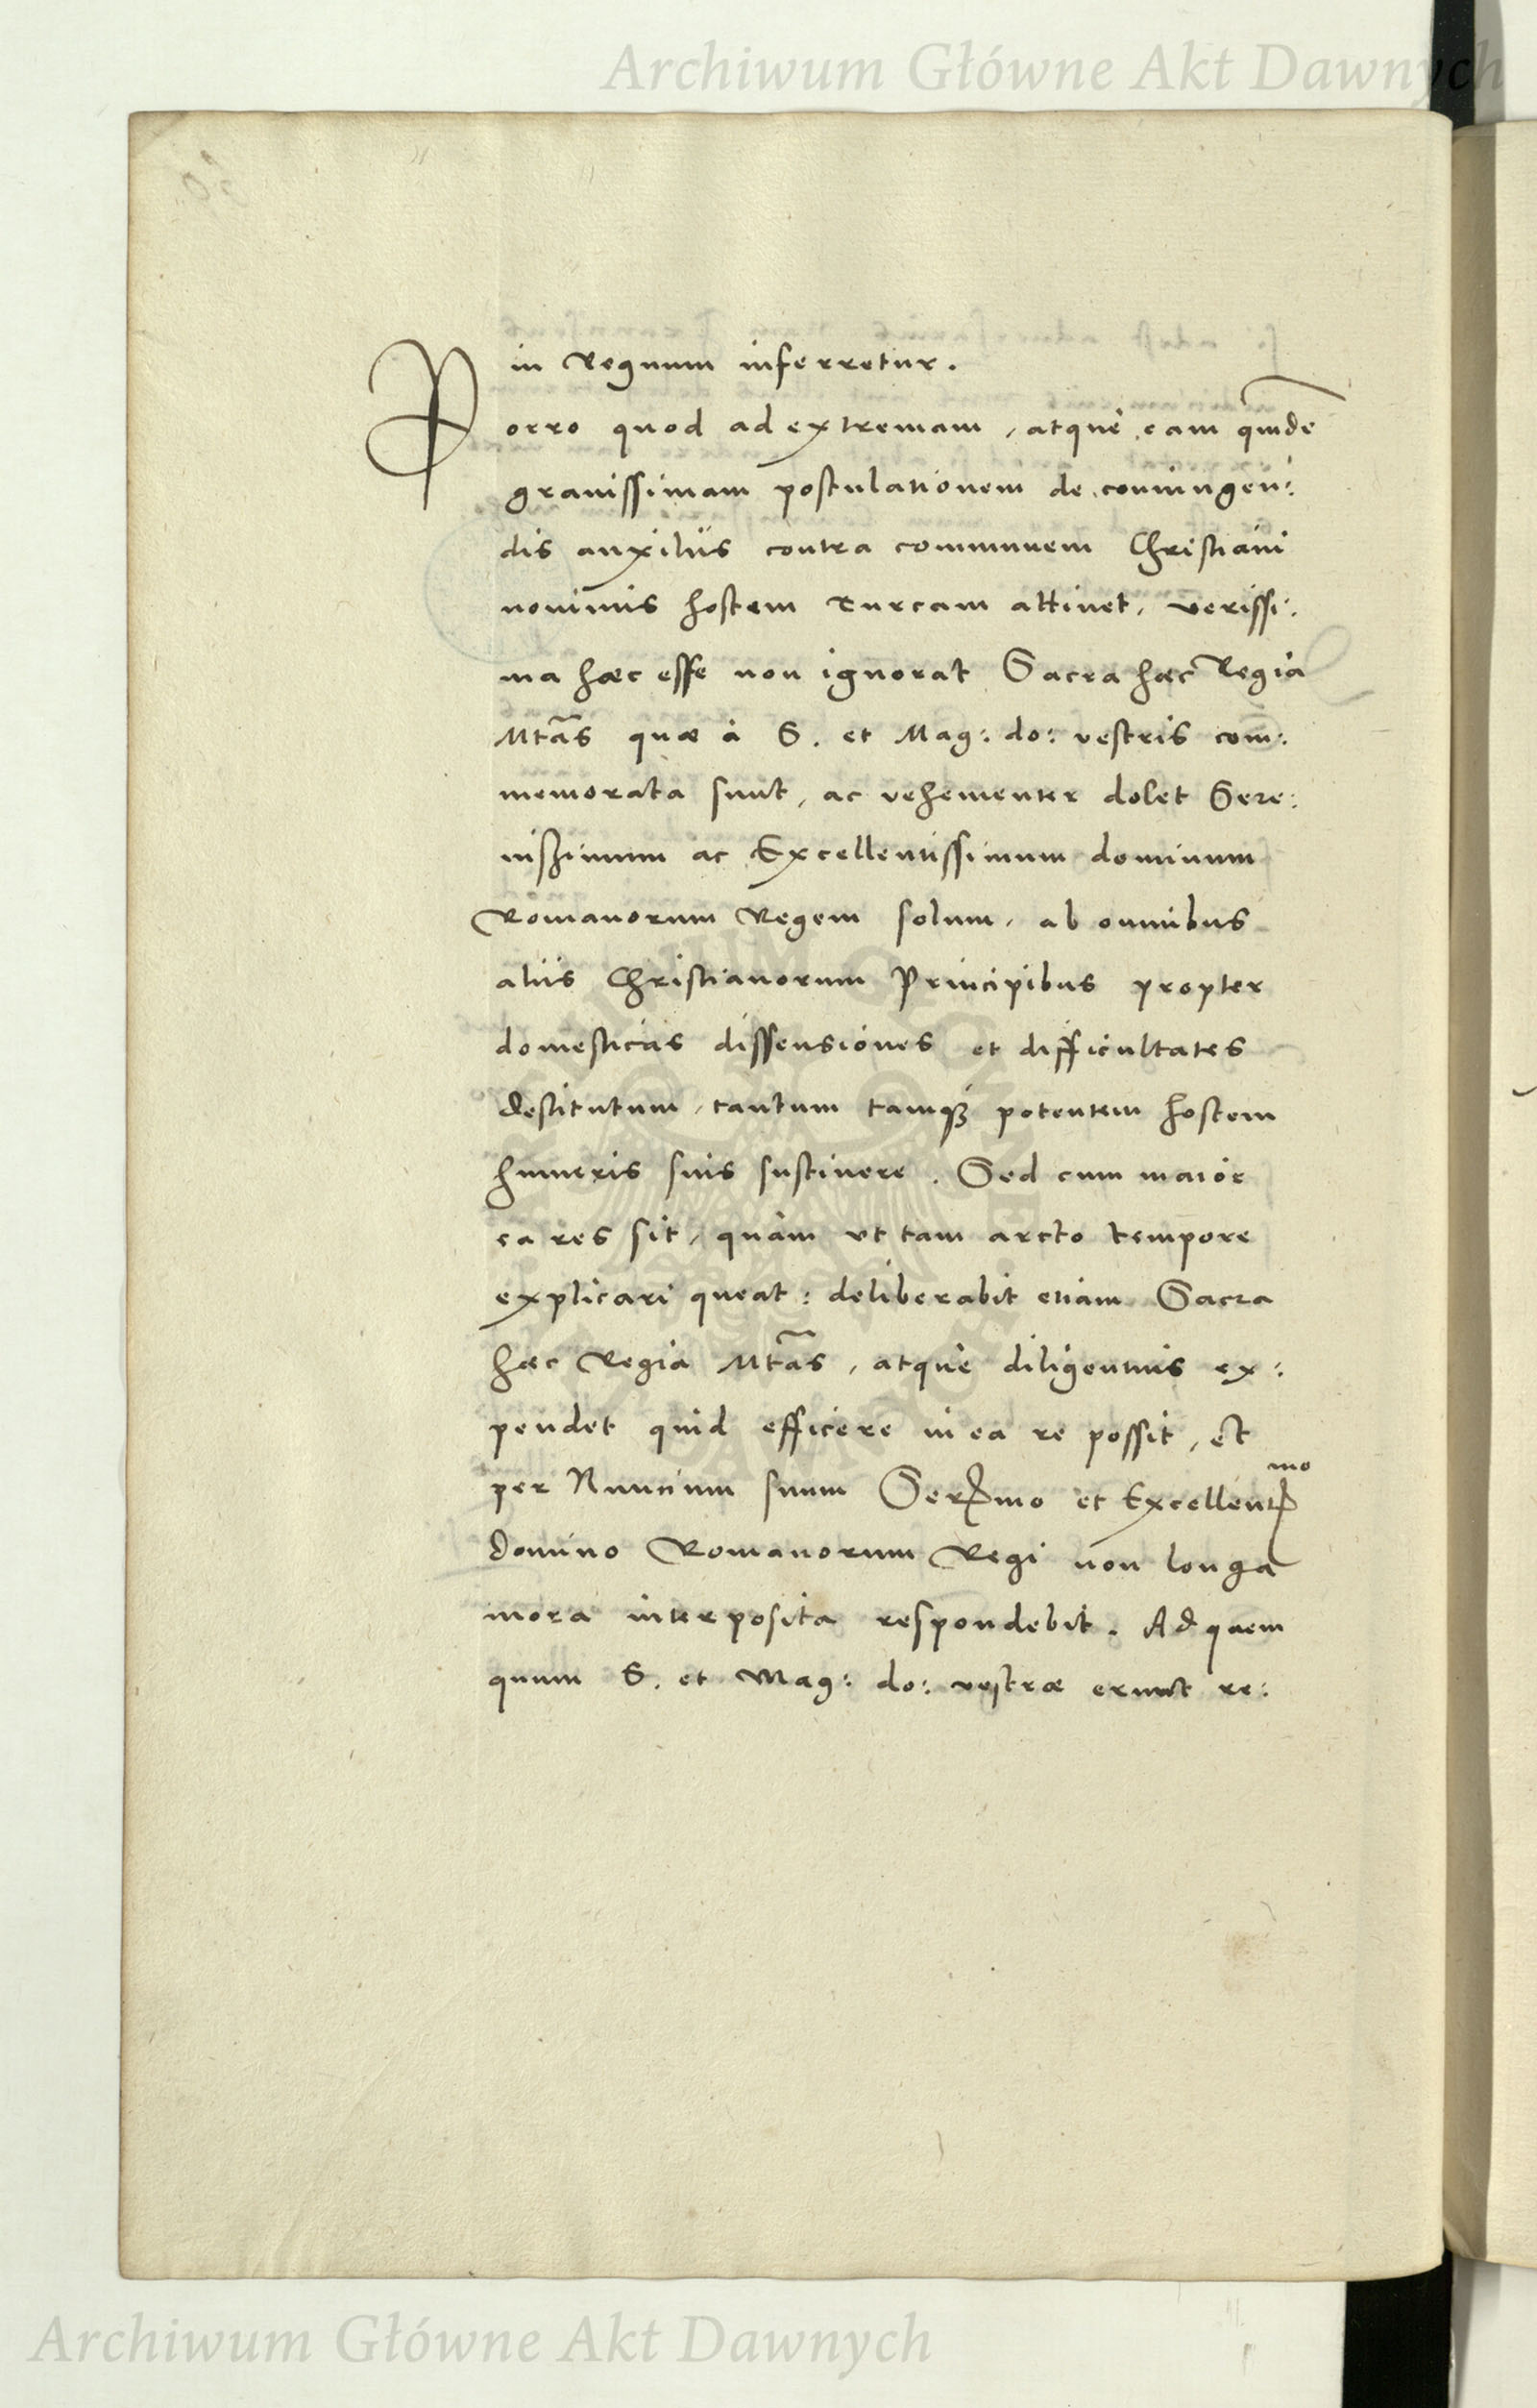 Archiwum Główne Akt Dawnych
in Regnum inferretur.
Porro quod ad extremam, atque eam quide
grauissimam postulationem de coniungen:
dis auxiliis contra communem Christiani
nominis hostem Turcam attinet, verissi:
ma haec esse non ignorat Sacra haec Regia
Mtas quae à S. et Mag: do: vestris com:
memorata sunt, ac vehementer dolet Sere:
nissimum ac Excellentissimum dominum
Romanorum Regem solum, ab omnibus
aliis Christianorum Principibus propter
domesticas dissensiones et difficultates
destitutum, tantum tamq3 potentem hostem
humeris suis sustinere. Sed cum maior
ea res sit, quàm vt tam arcto tempore
explicari queat: deliberabit etiam Sacra
haec Regia Mtas, atque diligentius ex:
pendet quid efficere in ea re possit, et
per Nuncium suum Sermo et Excellentmo
domino Romanorum Regi non longa
mora interposita respondebit. Ad quem
quum S. et Mag: do: vestrae erunt re:
Archiwum Główne Akt Dawnych